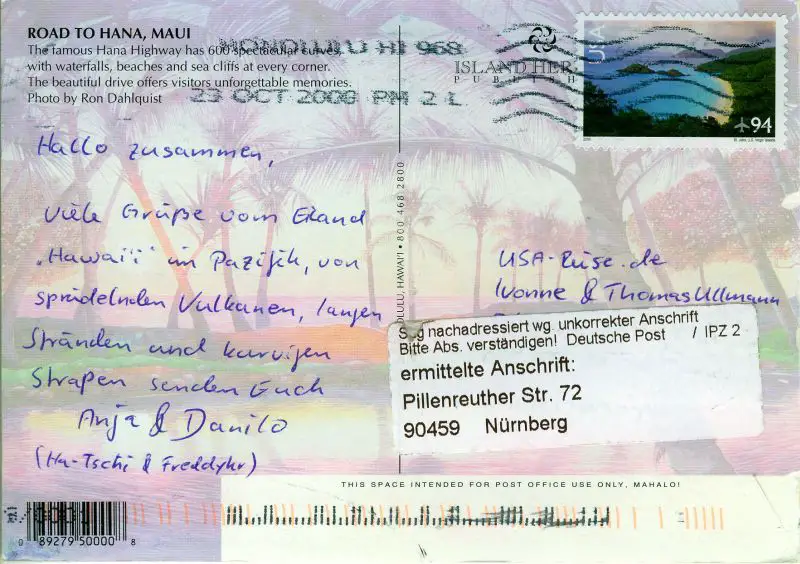 ROAD TO HANA, MAUI
The famous Hana Highway has 600 spectacular curves
with waterfalls, beaches and sea cliffs at every corner.
The beautiful drive offers visitors unforgettable memories.
Photo by Ron Dahlquist
HONOLULU HI 968
23 OCT 2008 PM 2 L
ISLAND HER
PUB SH
USA
94
Hallo zusammen,
viele Grüße vom Eiland
„Hawai'i" im Pazifik, von
sprudelnden Vulkanen, langen
Stränden und kurvigen
Straßen senden Euch
Anja & Danilo
(Ha-Tschi & Freddykr)
OLULU, HAWAI'I • 800 468 2800
USA-Reise.de
Ivonne & Thomas Ullmann
nachadressiert wg. unkorrekter Anschrift
Bitte Abs. verständigen! Deutsche Post / IPZ 2
ermittelte Anschrift:
Pillenreuther Str. 72
90459 Nürnberg
THIS SPACE INTENDED FOR POST OFFICE USE ONLY, MAHALO!
0 89279 50000 8